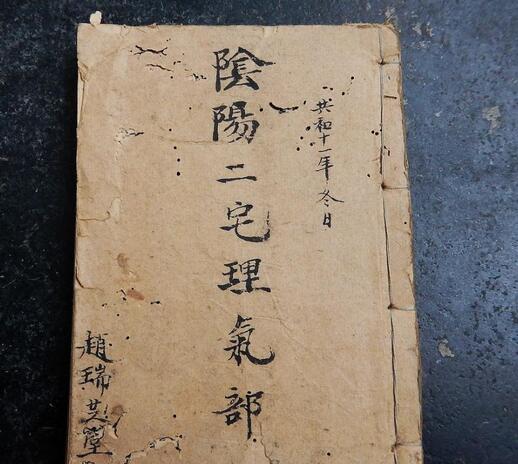 共和十一年冬日
陰陽二宅理氣部
趙瑞芝堂